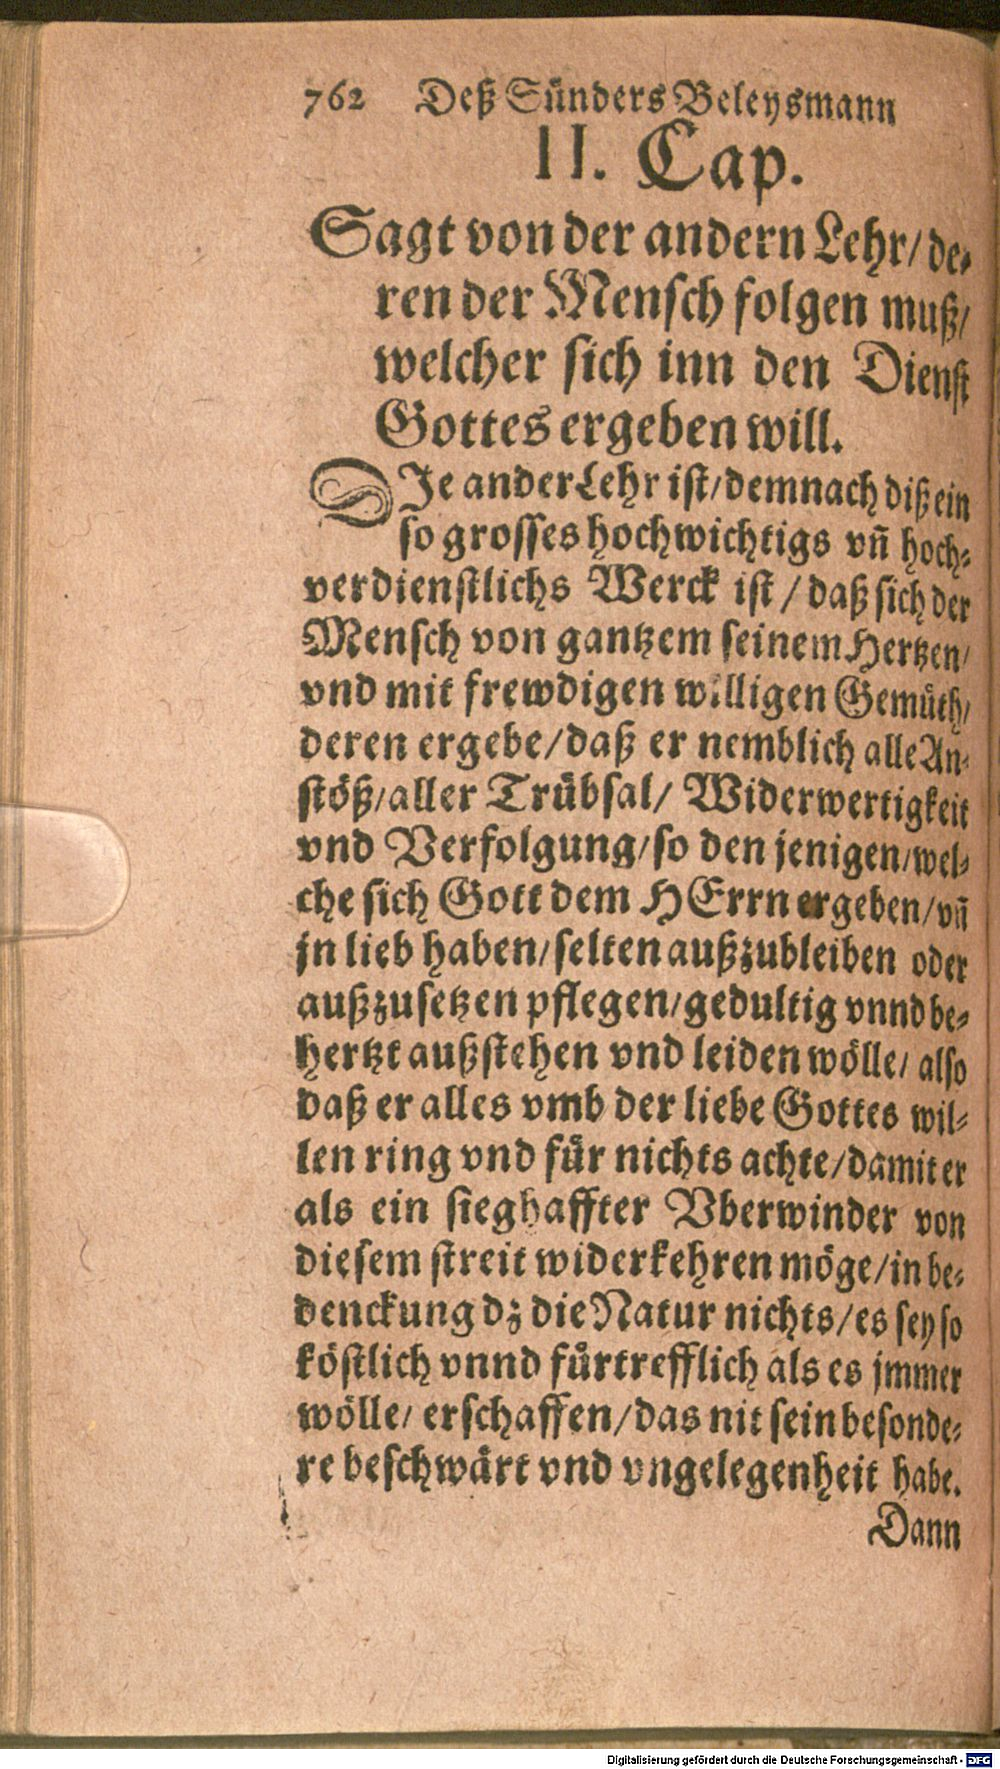 762 Deß Sünders Beleysmann
II. Cap.
Sagt von der andern Lehr/ de-
ren der Mensch folgen muß/
welcher sich inn den Dienst
Gottes ergeben will.
DIe ander Lehr ist/ demnach diß ein
so grosses hochwichtigs vñ hoch-
verdienstlichs Werck ist / daß sich der
Mensch von gantzem seinem Hertzen/
vnd mit frewdigen willigen Gemüth/
deren ergebe/ daß er nemblich alle An-
stöß/ aller Trübsal/ Widerwertigkeit
vnd Verfolgung/ so den jenigen/ wel-
che sich Gott dem HErrn ergeben/ vñ
jn lieb haben/ selten außzubleiben oder
außzusetzen pflegen/ gedultig vnnd be-
hertzt außstehen vnd leiden wölle/ also
daß er alles vmb der liebe Gottes wil-
len ring vnd für nichts achte/ damit er
als ein sieghaffter Vberwinder von
diesem streit widerkehren möge/ in be-
denckung dz die Natur nichts/ es sey so
köstlich vnnd fürtrefflich als es jmmer
wölle/ erschaffen/ das nit sein besonde-
re beschwärt vnd vngelegenheit habe.
Dann
Digitalisierung gefördert durch die Deutsche Forschungsgemeinschaft - DFG